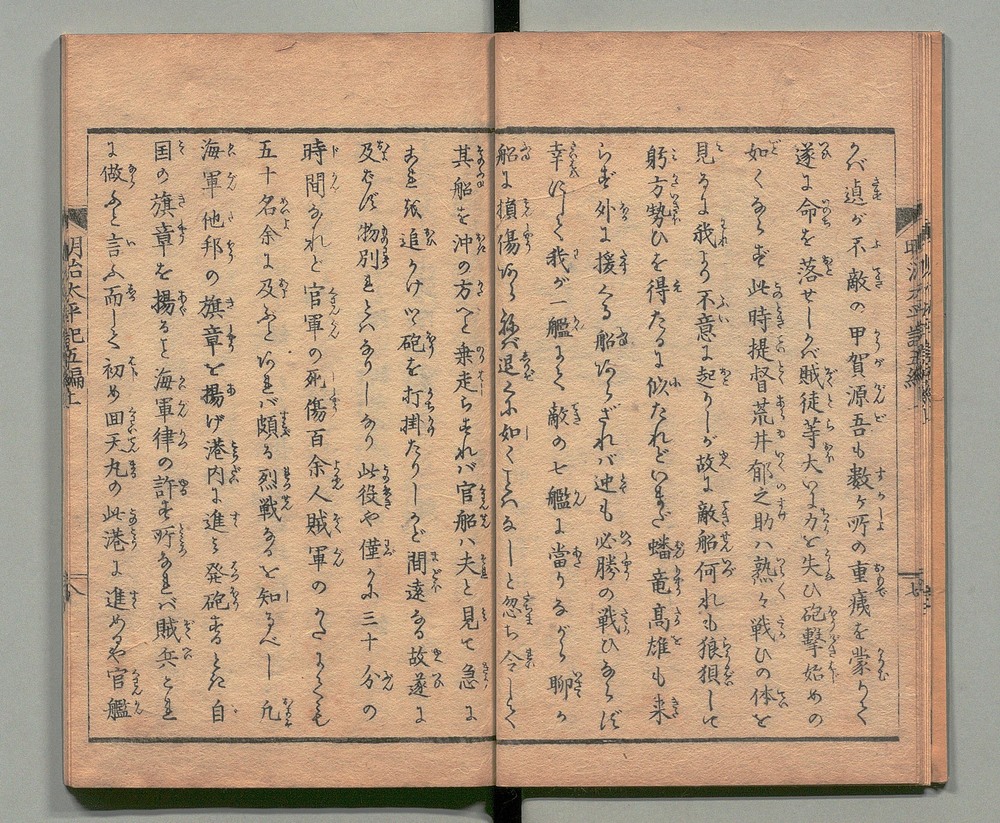 かば遉が不敵の甲賀源吾も数ヶ所の重痍を蒙りて
遂に命を落せしかバ賊徒等大いに力を失ひ砲撃始めの
如くならず此時提督荒井郁之助ハ熟々戦ひの体を
見るに我より不意に起りしが故に敵船何れも狼狽して
躬方勢ひを得たるに似たれどいまだ蟠竜高雄も来
らず外に援くる船あらざれバ迚も必勝の戦ひならず
幸にして我が一艦にて敵の七艦に當りながら聊か
船に損傷あら
退くに如くことなしと忽ち令して
其船を沖の方へと乗走らすれバ官船ハ夫と見て急に
あとを追かけツヽ砲を打掛たりしかど間遠なる故遂に
及ばず物別れとハなりしなり此役や僅かに三十分の
時間なれど官軍の死傷百余人賊軍のかたにても
五十名余に及ぶとあれバ頗る烈戦なるを知るべし凡
海軍他邦の旗章を揚げ港内に進み発砲するとき自
国の旗章を揚るを海軍律の許す所なれバ賊兵これ
に做ふと言ふ而して初め回天丸の此港に進めるや官艦
明治太平記五編上
八
七